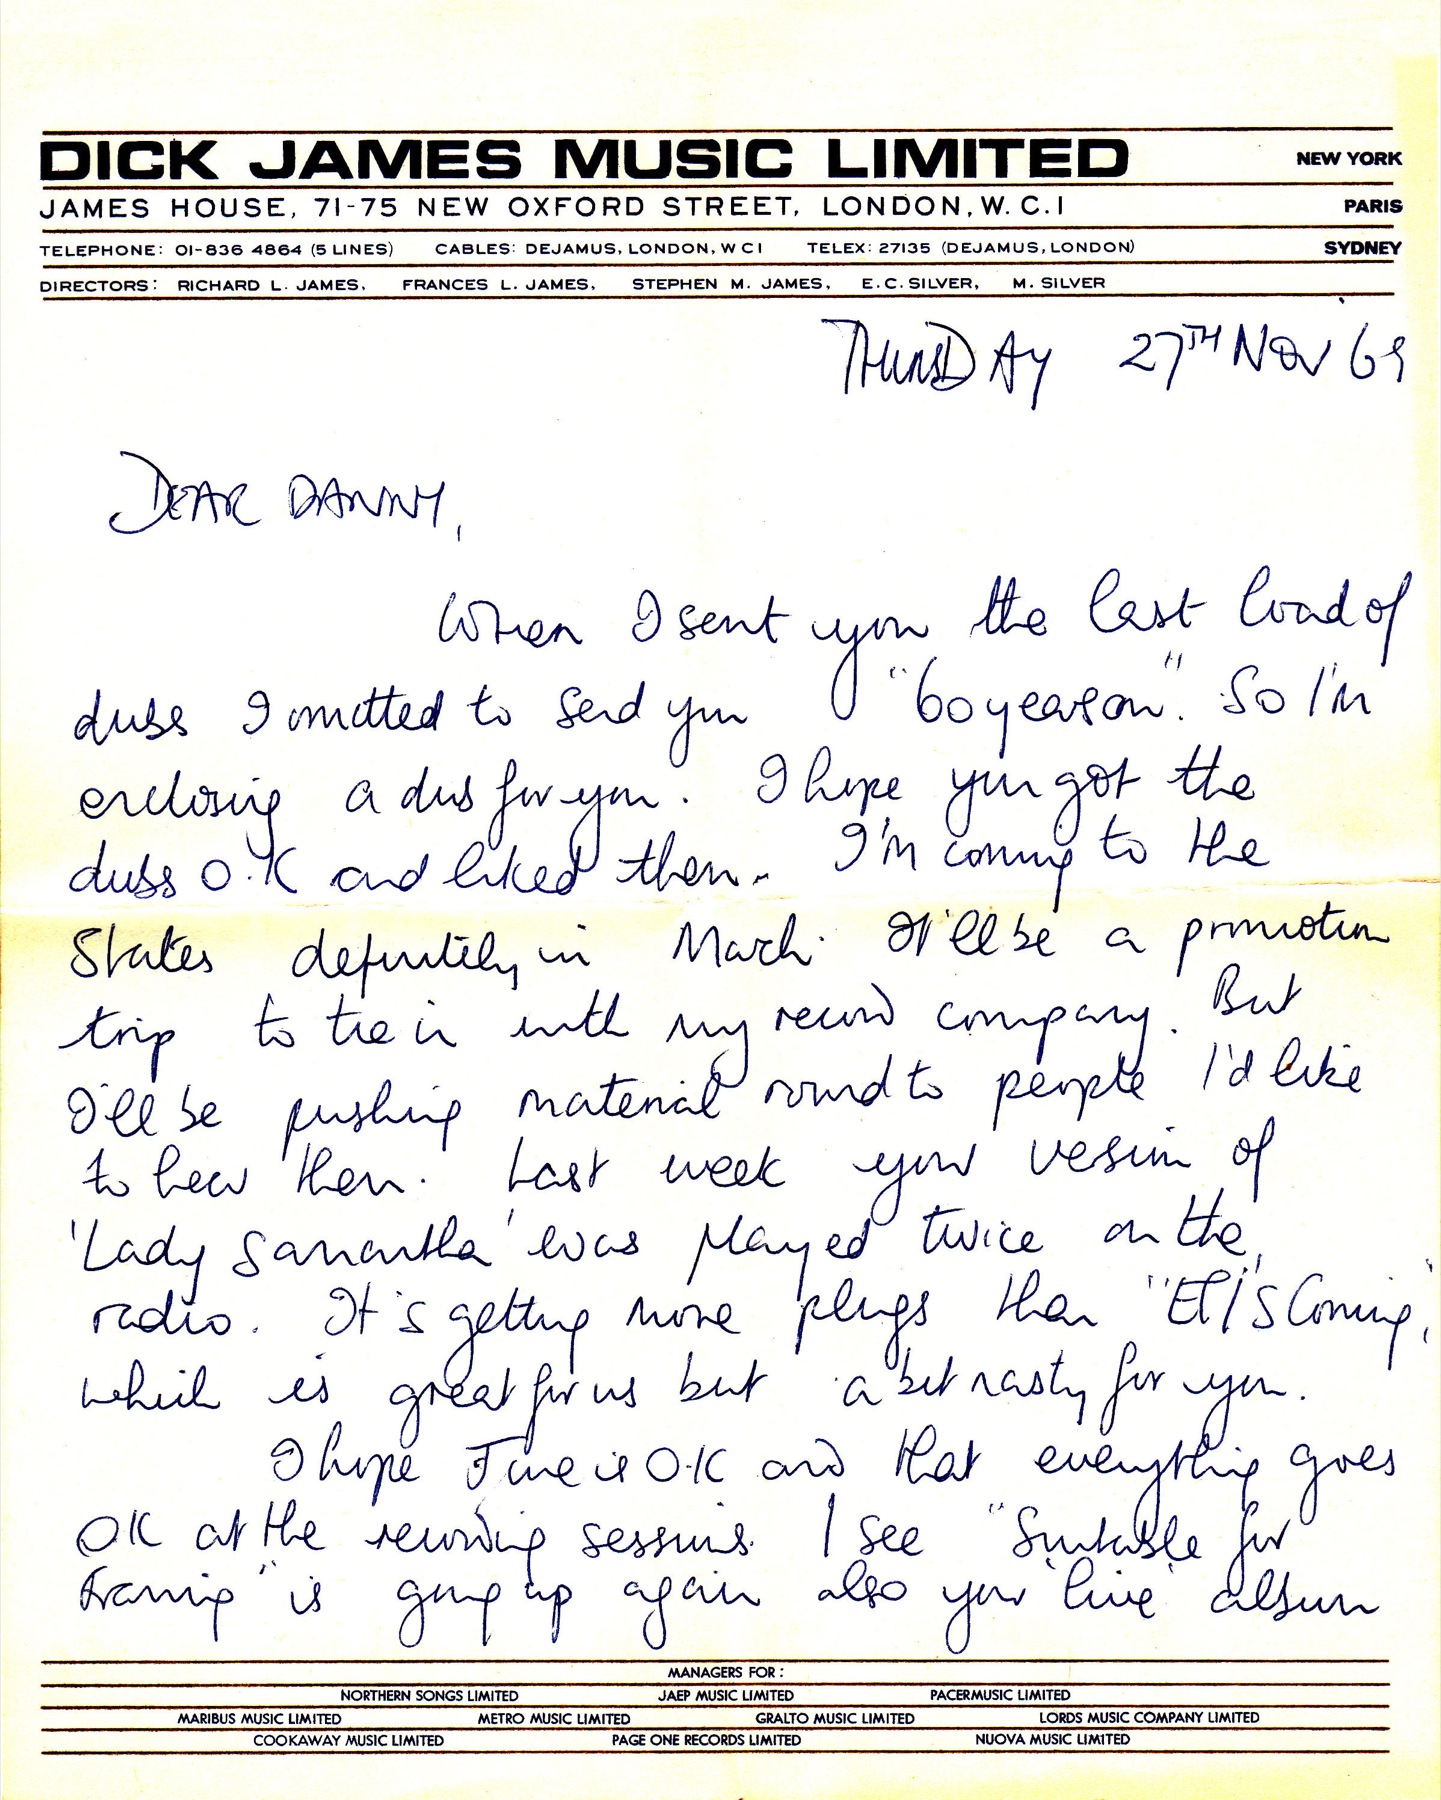 DICK JAMES MUSIC LIMITED NEW YORK
JAMES HOUSE, 71-75 NEW OXFORD STREET, LONDON, W.C.1 PARIS
TELEPHONE: 01-836 4864 (5 LINES) CABLES: DEJAMUS, LONDON, WC1 TELEX: 27135 (DEJAMUS, LONDON) SYDNEY
DIRECTORS: RICHARD L. JAMES, FRANCES L. JAMES, STEPHEN M. JAMES, E.C. SILVER, M. SILVER
THURSDAY 27TH NOV '69
DEAR DANNY,
When I sent you the last load of
dubs I omitted to send you "60 years on". So I'm
enclosing a dub for you. I hope you got the
dubs O.K and liked them. I'm coming to the
States definitely in March. It'll be a promotion
trip to tie in with my record company. But
I'll be pushing material round to people I'd like
to hear them. Last week your version of
'Lady Samantha' was played twice on the
radio. It's getting more plugs than "ELI'S Coming",
which is great for us but a bit nasty for you.
I hope June is O.K and that everything goes
OK at the recording sessions. I see "Suitable for
Framing" is going up again also your 'live' album
MANAGERS FOR:
NORTHERN SONGS LIMITED JAEP MUSIC LIMITED PACERMUSIC LIMITED
MARIBUS MUSIC LIMITED METRO MUSIC LIMITED GRALTO MUSIC LIMITED LORDS MUSIC COMPANY LIMITED
COOKAWAY MUSIC LIMITED PAGE ONE RECORDS LIMITED NUOVA MUSIC LIMITED